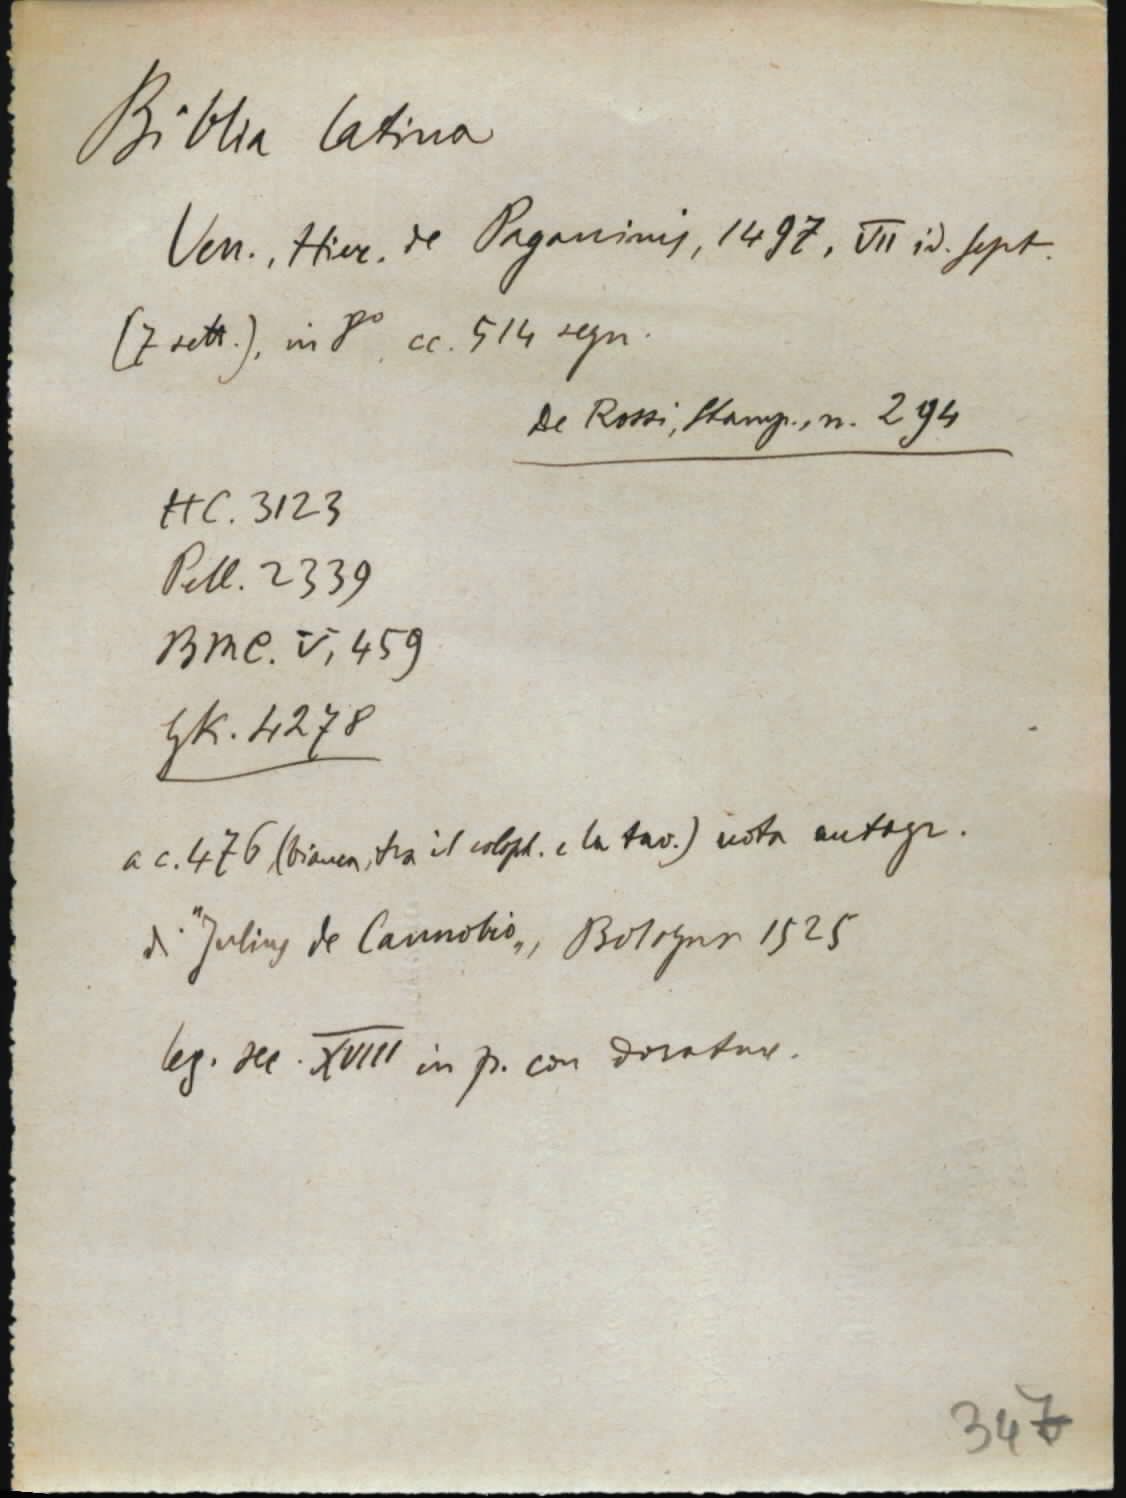 Biblia latina
Ven., Hier. de Paganinis, 1497, VII id. sept.
(7 sett.), in 8º cc. 514 segn.
De Rossi, Stamp., n. 294
HC. 3123
Pell. 2339
BMC. V, 459
GK. 4278
a c. 476 (bianca, tra il coloph. e la tav.) nota autogr.
di "Julius de Cannobio„, Bologna 1525
leg. sec. XVIII in p. con dorature.
347